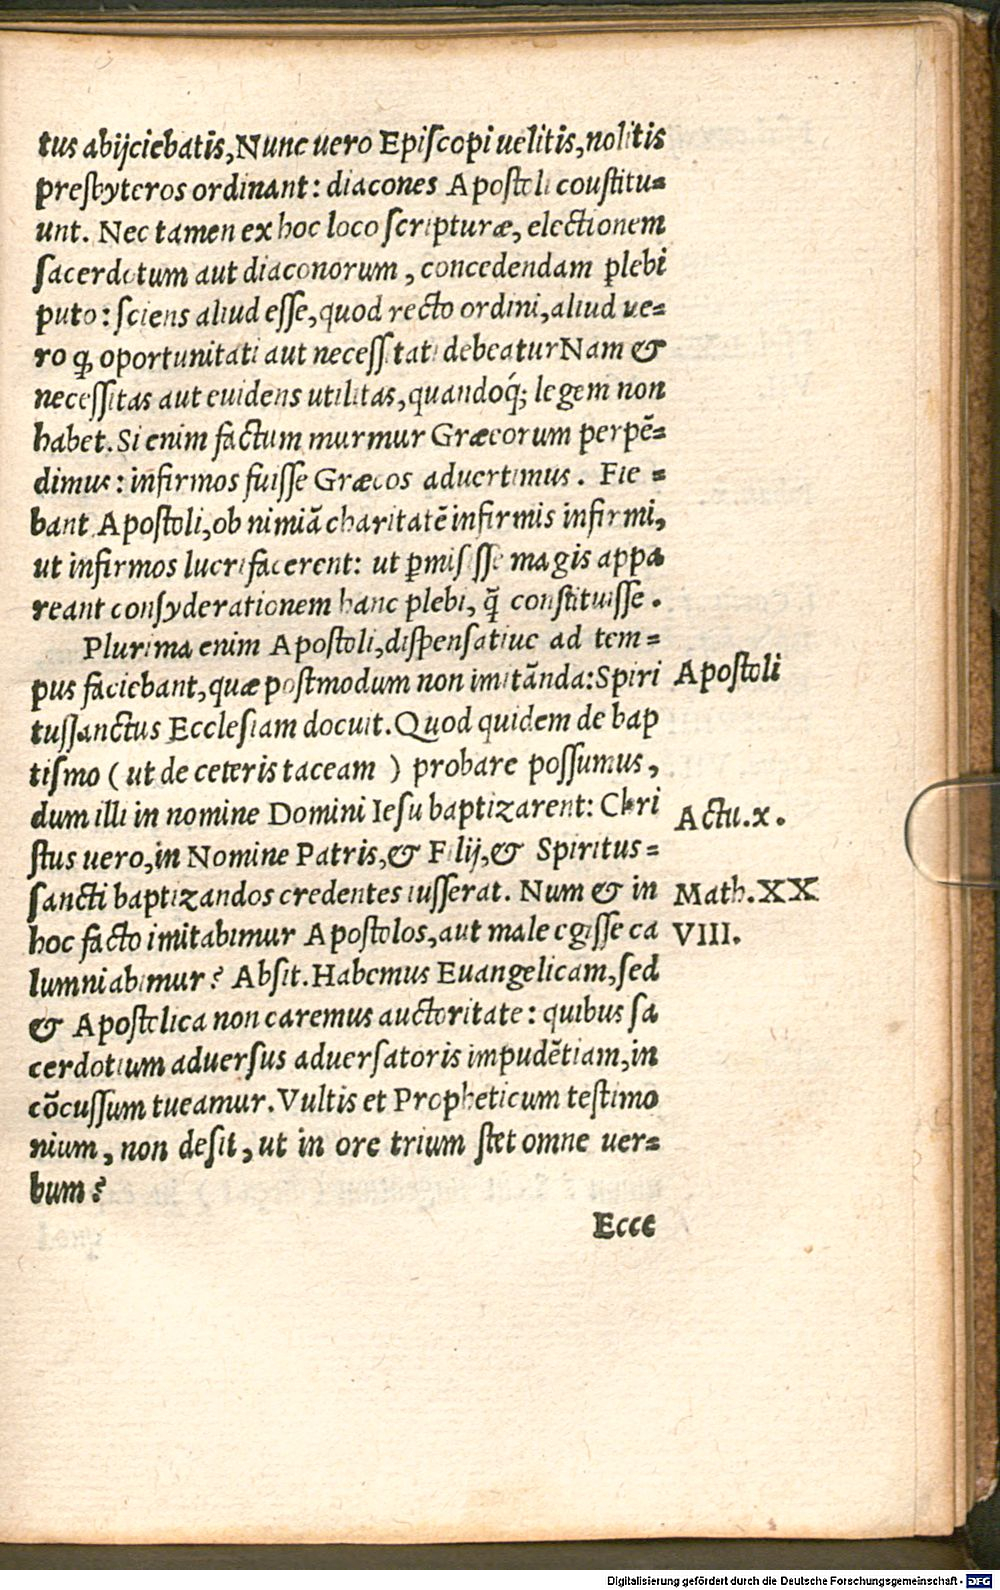 tus abijciebatis, Nunc uero Episcopi uelitis, nolitis
presbyteros ordinant: diacones Apostoli coustitu=
unt. Nec tamen ex hoc loco scripturæ, electionem
sacerdotum aut diaconorum, concedendam plebi
puto: sciens aliud esse, quod recto ordini, aliud ue=
ro qƺ oportunitati aut necessitati debeatur Nam &
necessitas aut euidens utilitas, quandoq́; legem non
habet. Si enim factum murmur Græcorum perpẽ=
dimus: infirmos fuisse Græcos aduertimus. Fie=
bant Apostoli, ob nimiã charitatẽ infirmis infirmi,
ut infirmos lucrifacerent: ut ꝑmisisse magis appa
reant consyderationem hanc plebi, q̃ constituisse.
Plurima enim Apostoli, dispensatiue ad tem=
pus faciebant, quæ postmodum non imitãnda: Spiri
tussanctus Ecclesiam docuit. Quod quidem de bap
tismo (ut de ceteris taceam) probare possumus,
dum illi in nomine Domini Iesu baptizarent: Chri
stus uero, in Nomine Patris, & Filij, & Spiritus=
sancti baptizandos credentes iusserat. Num & in
hoc facto imitabimur Apostolos, aut male egisse ca
lumniabimur? Absit. Habemus Euangelicam, sed
& Apostolica non caremus auctoritate: quibus sa
cerdotium aduersus aduersatoris impudẽtiam, in
cõcussum tueamur. Vultis et Propheticum testimo
nium, non desit, ut in ore trium stet omne uer=
bum?
Ecce
Apostoli
Actu.x.
Math.XX
VIII.
Digitalisierung gefördert durch die Deutsche Forschungsgemeinschaft - DFG